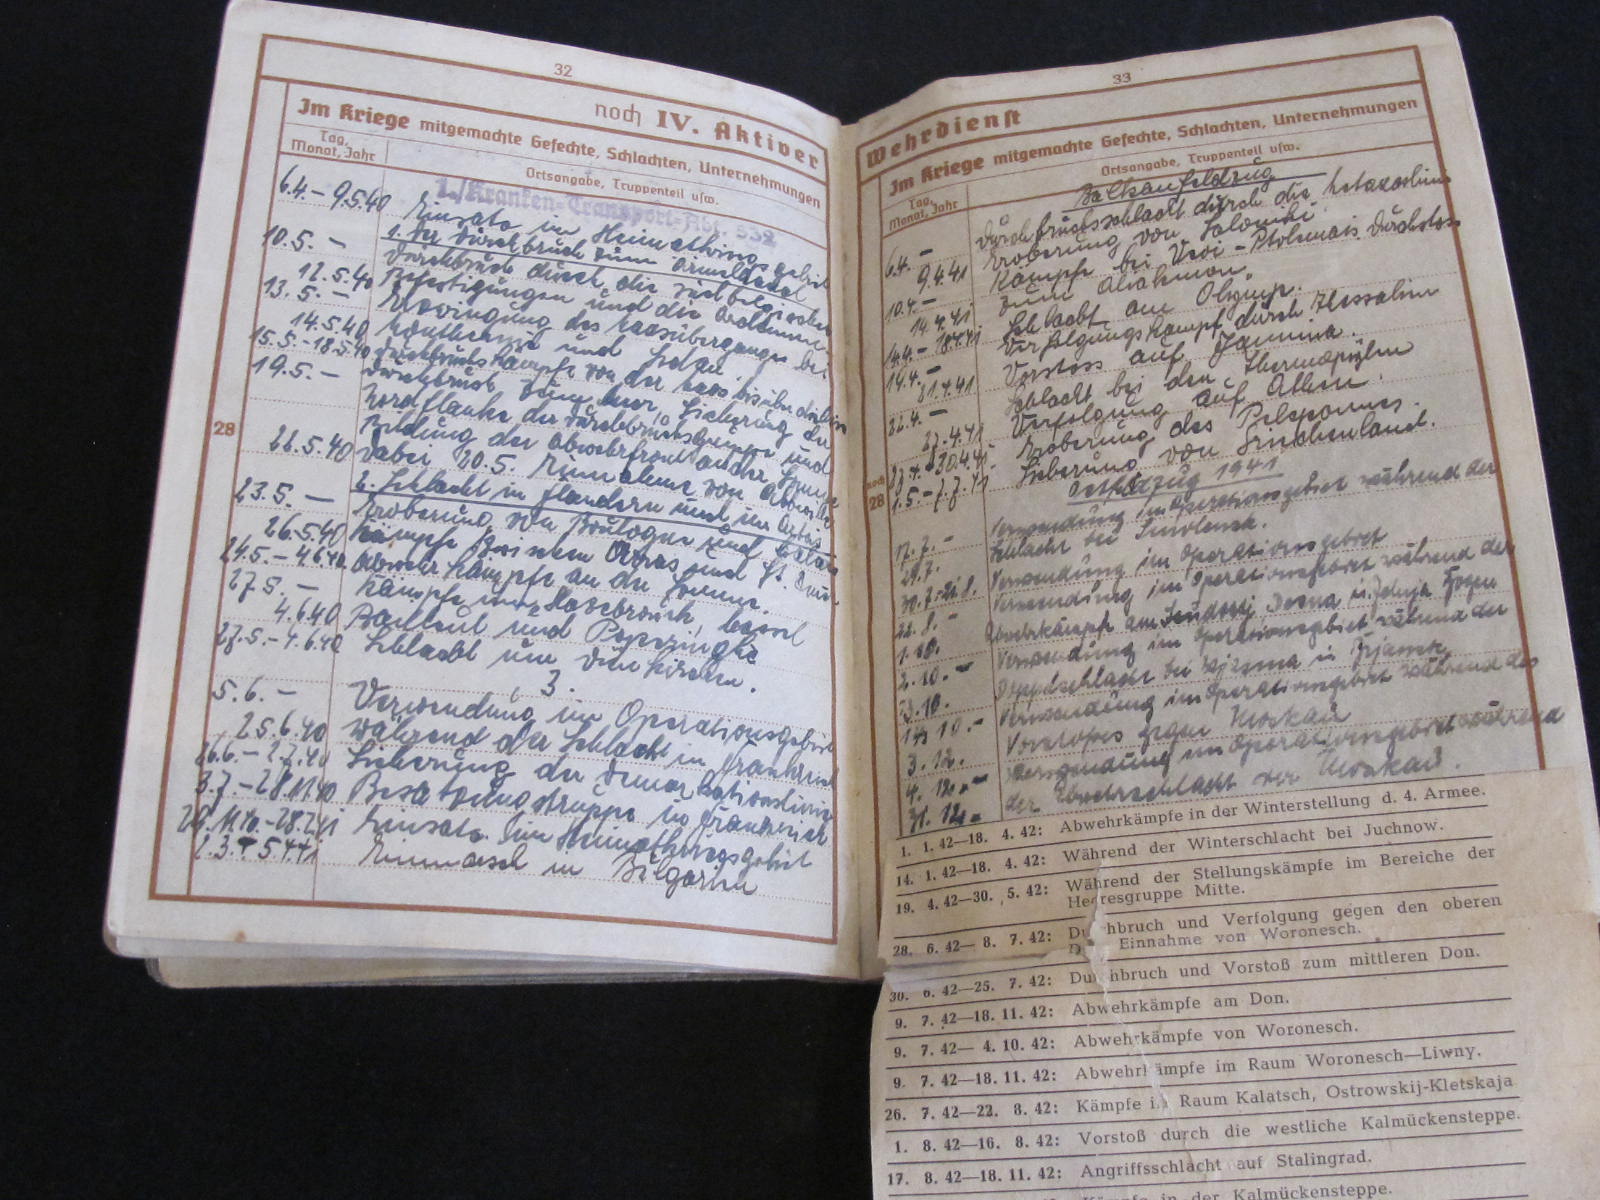 32
noch IV. Aktiver
Im Kriege mitgemachte Gefechte, Schlachten, Unternehmungen
Tag, Monat, Jahr
Ortsangabe, Truppenteil usw.
1./Kranken-Transport-Abt. 532
6.4. - 9.5.40 Einsatz im Heimatkriegsgebiet
10.5. - 1. Der Durchbruch zum Ärmelkanal
Durchbruch durch die südbelgischen
12.5.40 Befestigungen und die Ardennen
13.5. - Erzwingung des Maasüberganges bei
14.5.40 und Sedan
15.5. - 18.5.40 Durchbruchskämpfe von der Maas bis
19.5. - Durchbruch zum Meer, Sicherung der
Nordflanke der Durchbruchsgruppe und
28
Bildung der Abwehrfront an der Somme
22.5.40 dabei 20.5. Einnahme von Abbeville
2. Schlacht in Flandern und im Artois
23.5. - Eroberung von Boulogne und Calais
26.5.40 Kämpfe zwischen Arras und
24.5. - 4.6.40 Abwehrkämpfe an der Somme.
27.5. - Kämpfe um Hazebrouck, Cassel
4.6.40 Bailleul und Poperinghe
27.5. - 4.6.40 Schlacht um Dünkirchen.
3.
5.6. - Verwendung im Operationsgebiet
25.6.40 während der Schlacht in Frankreich
26.6. - 2.7.40 Sicherung der Demarkationslinie
3.7. - 28.11.40 Besatzungstruppe in Frankreich
Einsatz im Heimatkriegsgebiet
2.3. - 5.4.41 Einmarsch in Bulgarien
33
Wehrdienst
Im Kriege mitgemachte Gefechte, Schlachten, Unternehmungen
Tag, Monat, Jahr
Ortsangabe, Truppenteil usw.
Balkanfeldzug
6.4. - Durchbruchsschlacht durch die Metaxaslinie
9.4.41 Eroberung von Saloniki
10.4. - Kämpfe bei Vevi - Ptolemais Durchstoss
14.4.41 zum Aliakmon.
Schlacht am Olymp.
14.4. - Verfolgungskampf durch Thessalien
21.4.41 Vorstoss auf Jannina.
22.4. - Schlacht bei den Thermopylen
27.4.41 Verfolgung auf Athen.
Eroberung des Peloponnes.
noch 28
Sicherung von Griechenland.
Ostfeldzug 1941
Verwendung im Operationsgebiet während der
17.7. - Schlacht bei Smolensk.
Verwendung im Operationsgebiet
22.8. - Verwendung im Operationsgebiet während der
1.10. Abwehrkämpfe am Desna Jelnja Bogen
2.10. - Verwendung im Operationsgebiet während der
Doppelschlacht bei Wjasma u. Brjansk
Verwendung im Operationsgebiet während des
3.12. Vorstosses gegen Moskau
4.12. - Verwendung im Operationsgebiet während
31.12. der Abwehrschlacht vor Moskau.
1. 1. 42—18. 4. 42: Abwehrkämpfe in der Winterstellung d. 4. Armee.
14. 1. 42—18. 4. 42: Während der Winterschlacht bei Juchnow.
19. 4. 42—30. 5. 42: Während der Stellungskämpfe im Bereiche der
Heeresgruppe Mitte.
28. 6. 42— 8. 7. 42: Du chbruch und Verfolgung gegen den oberen
D Einnahme von Woronesch.
30. 6. 42—25. 7. 42: Du chbruch und Vorstoß zum mittleren Don.
9. 7. 42—18. 11. 42: Abwehrkämpfe am Don.
9. 7. 42— 4. 10. 42: Abwehrkämpfe von Woronesch.
9. 7. 42—18. 11. 42: Abwehrkämpfe im Raum Woronesch—Liwny.
26. 7. 42—22. 8. 42: Kämpfe i Raum Kalatsch, Ostrowskij-Kletskaja
1. 8. 42—16. 8. 42: Vorstoß durch die westliche Kalmückensteppe.
17. 8. 42—18. 11. 42: Angriffsschlacht auf Stalingrad.
Kämpfe in der Kalmückensteppe.